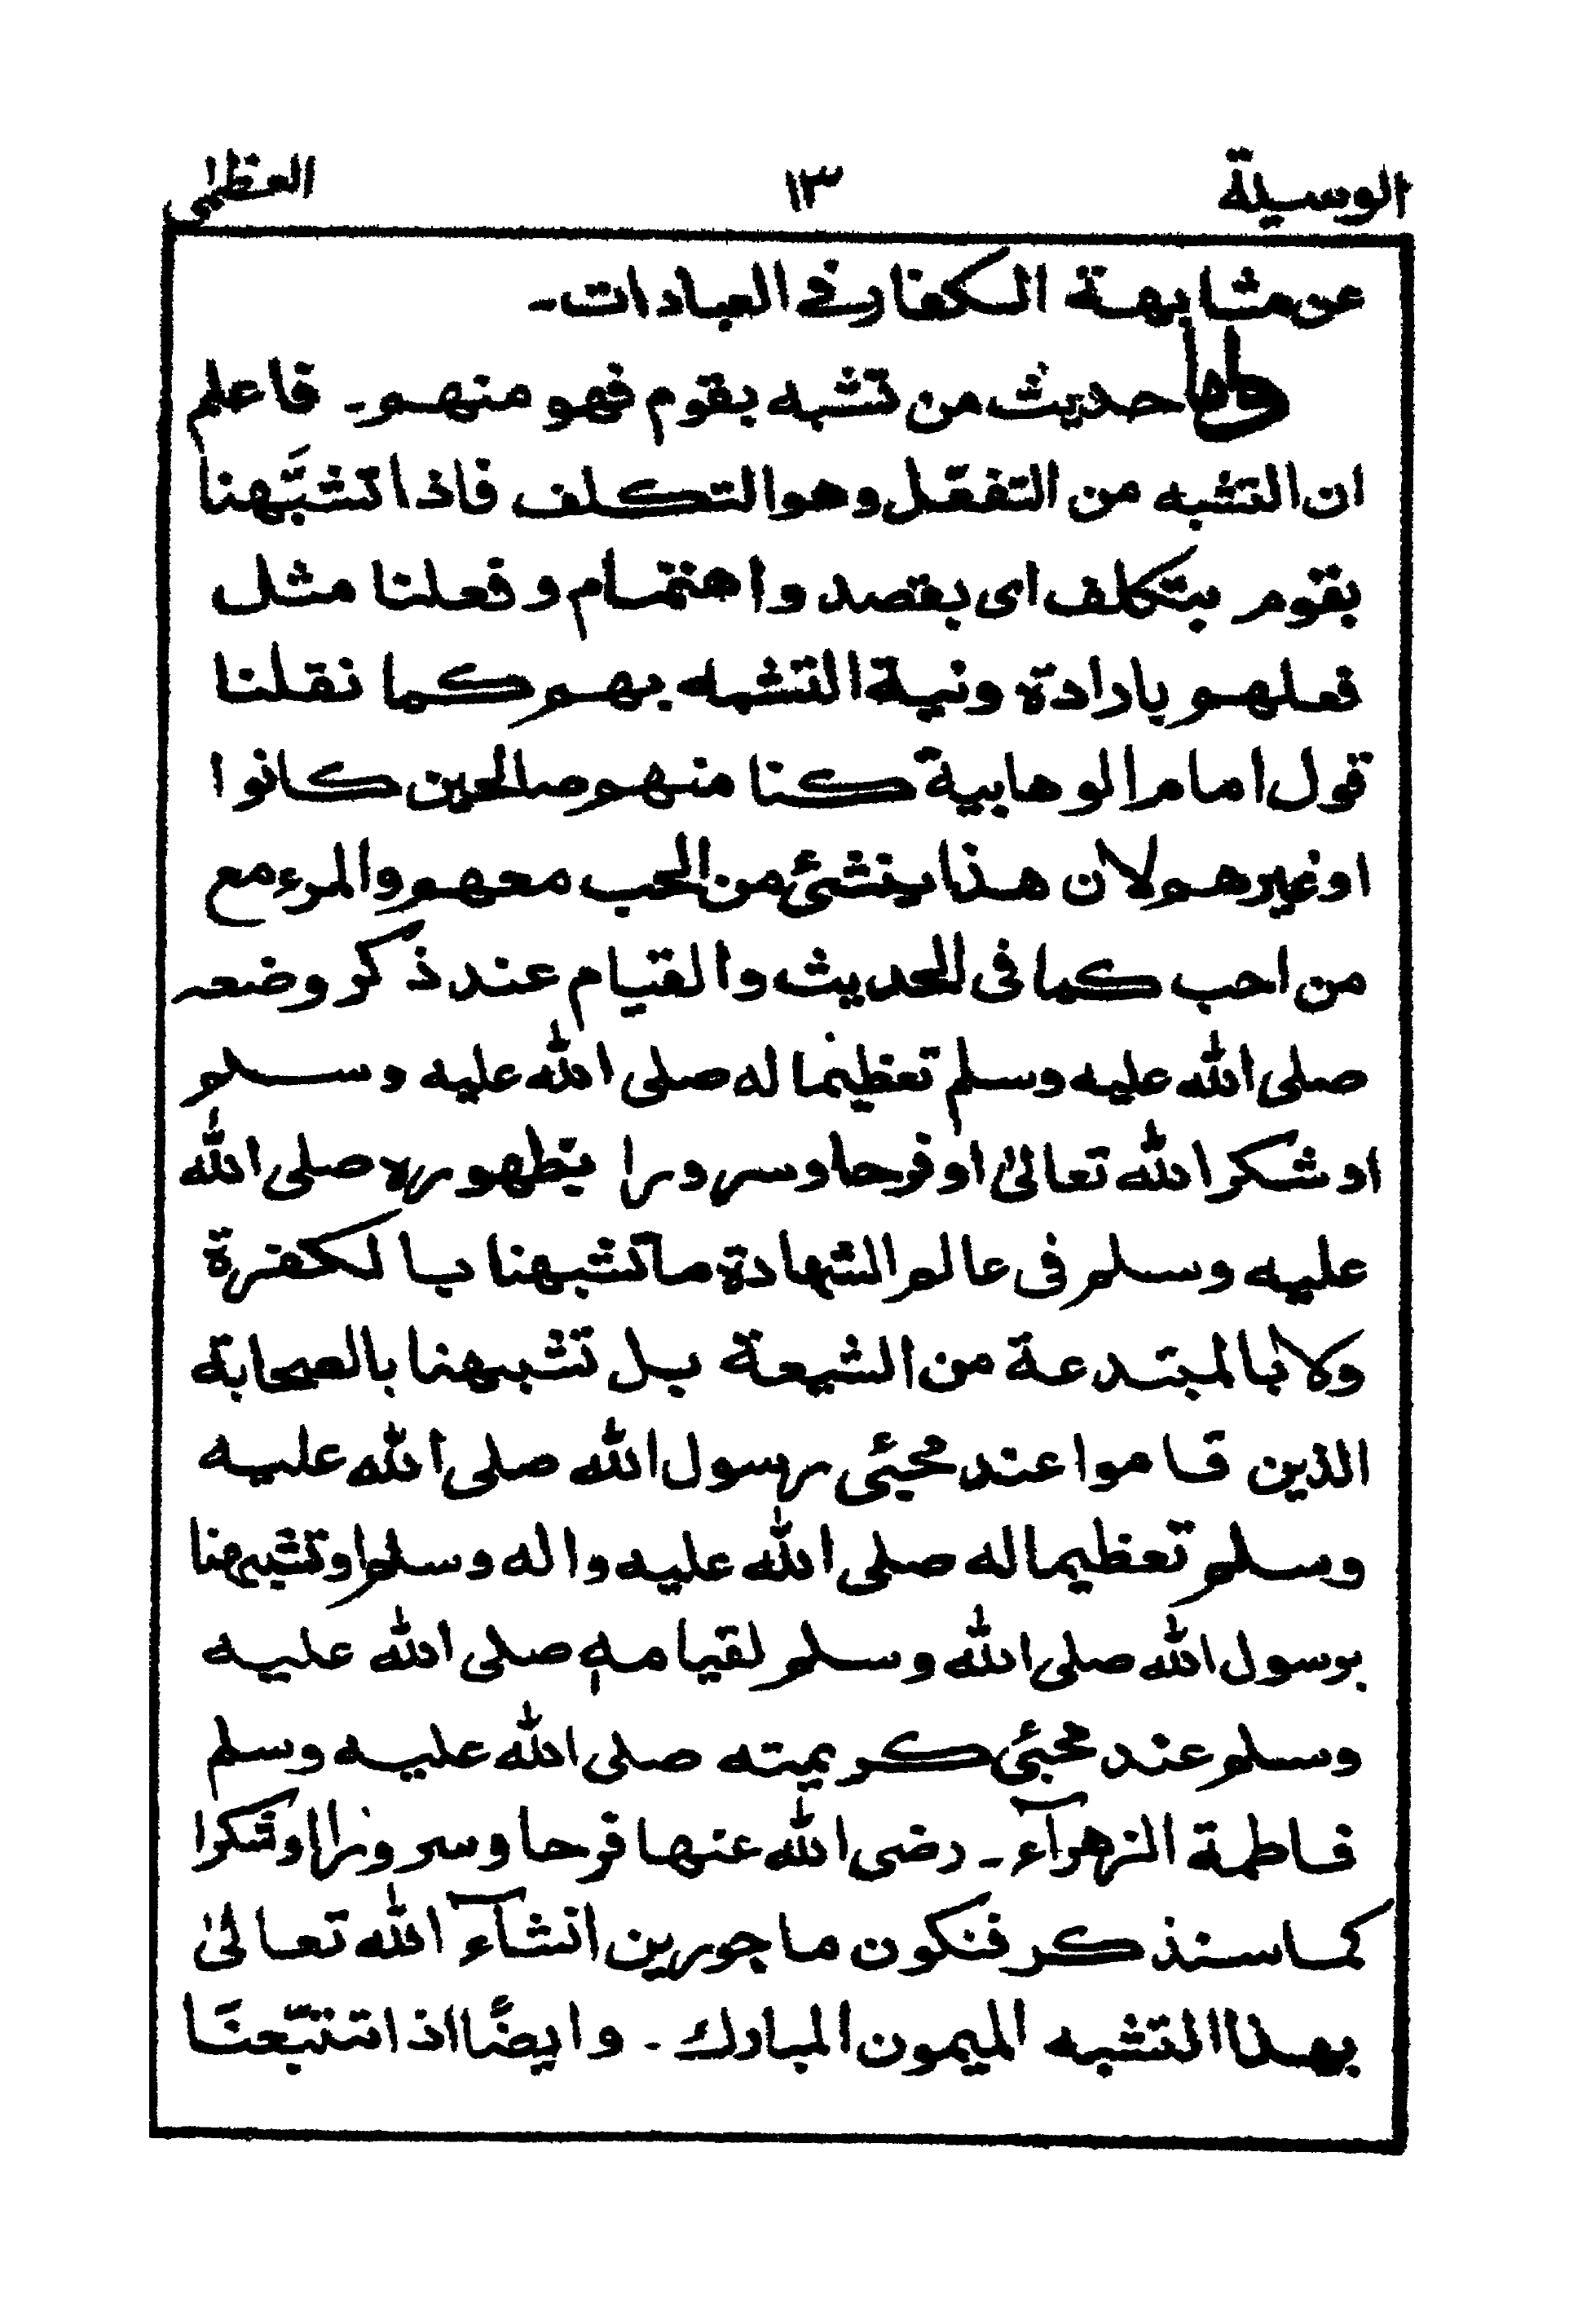 الوسيلة ١٣ العظمى
عن مشابهة الكفار في العبادات۔
واما حديث من تشبه بقوم فهو منهم۔ فاعلم
ان التشبه من التفعّل وهو التكلف فاذا تشبَّهنا
بقوم بتكلف اى بقصد واهتمام و فعلنا مثل
فعلهم بارادة ونية التشبه بهم كما نقلنا
قول امام الوهابية كنا منهم صالحين كانوا
او غيرهم لان هذا ينشئ من الحب معهم والمرء مع
من احب كما فى الحديث والقيام عند ذكر وضعه
صلى الله عليه وسلم تعظيما له صلى الله عليه وسلم
او شكر الله تعالىٰ او فرحا وسرورا بظهوره صلى الله
عليه وسلم فى عالم الشهادة ما تشبهنا بالكفرة
ولا بالمبتدعة من الشيعة بل تشبهنا بالصحابة
الذين قاموا عند مجيئى رسول الله صلى الله عليه
وسلم تعظيما له صلى الله عليه واله وسلم او تشبهنا
برسول الله صلى الله وسلم لقيامهٖ صلى الله عليه
وسلم عند مجيئ كريمته صلى الله عليه وسلم
فاطمة الزهرآء ۔ رضى الله عنها فرحا وسرورا او شكرا
كما سنذكر فنكون ماجورين انشآء الله تعالىٰ
بهذا التشبه الميمون المبارك ۔ وايضًا اذا تتبّعنَا